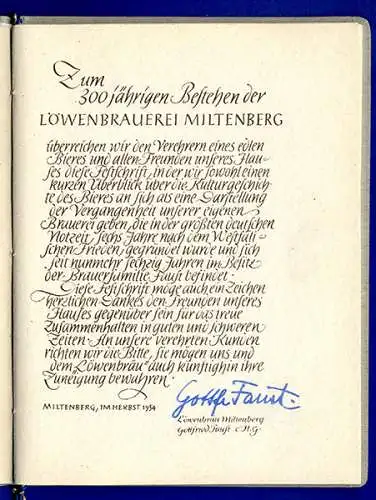 Zum
300jährigen Bestehen der
LÖWENBRAUEREI MILTENBERG
überreichen wir den Verehrern eines edlen
Bieres und allen Freunden unseres Hau-
ses diese Festschrift, in der wir sowohl einen
kurzen Überblick über die Kulturgeschich-
te des Bieres an sich als eine Darstellung
der Vergangenheit unserer eigenen
Brauerei geben, die in der größten deutschen
Notzeit, sechs Jahre nach dem Westfäli-
schen Frieden, gegründet wurde und sich
seit nunmehr sechzig Jahren im Besitz
der Brauerfamilie Faust befindet.
Diese Festschrift möge auch ein Zeichen
herzlichen Dankes den Freunden unseres
Hauses gegenüber sein für das treue
Zusammenhalten in guten und schweren
Zeiten. An unsere verehrten Kunden
richten wir die Bitte, sie mögen uns und
dem Löwenbräu auch künftighin ihre
Zuneigung bewahren.
MILTENBERG, IM HERBST 1954
Gottfr Faust.
Löwenbräu Miltenberg
Gottfried Faust o.H.G.